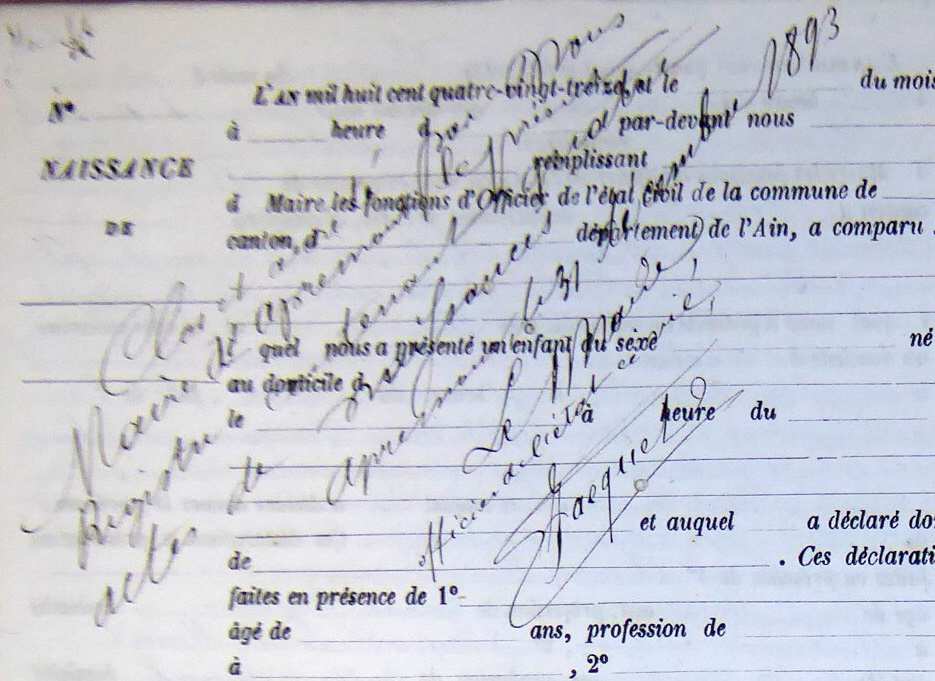 L'AN mil huit cent quatre-vingt-treize, et le du mois
N° à heure d par-devant nous
NAISSANCE remplissant
d Maire les fonctions d'Officier de l'état civil de la commune de
DE canton, d département de l'Ain, a comparu
le quel nous a présenté un enfant du sexe né
au domicile d
le à heure du
et auquel a déclaré do
de . Ces déclarati
faites en présence de 1°
âgé de ans, profession de
à , 2°
Clos et arrêté par nous
Maire d'Apremont le présent
Registre contenant
actes de naissances
Apremont le 31 Décembre 1893
Le Maire,
officier de l'état civil,